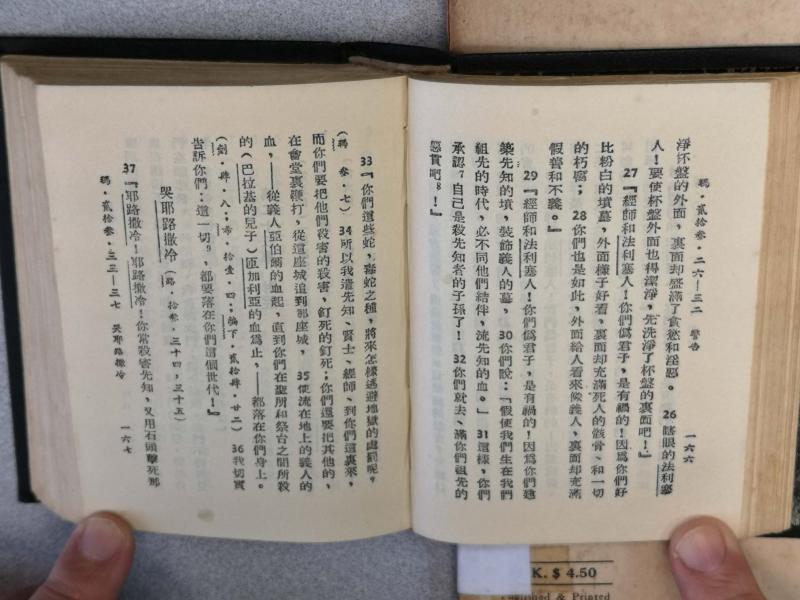 瑪・貳拾叁・二六—三二 警告 一六六
淨杯盤的外面，裏面却盛滿了貪慾和淫惡。 26 瞎眼的法利塞
人！要使杯盤外面也得潔淨，先洗淨了杯盤的裏面吧！』
27 『經師和法利塞人！你們僞君子，是有禍的！因爲你們好
比粉白的墳墓，外面樣子好看，裏面却充滿死人的骸骨、和一切
的朽腐； 28 你們也是如此，外面給人看來像義人，裏面却充滿
假善和不義。』
29 『經師和法利塞人！你們僞君子，是有禍的！因爲你們建
築先知的墳，裝飾義人的墓， 30 你們說：「假使我們生在我們
祖先的時代，必不同他們結伴，流先知的血。」 31 這樣，你們
承認7自己是殺先知者的子孫了！ 32 你們就去、滿你們祖先的
惡貫吧8！』
33 『你們這些蛇，毒蛇之種，將來怎樣逃避地獄的處罰呢？
(瑪・叁・七) 34 所以我遣先知、賢士、經師、到你們這裏來，
而你們要把他們殺害的殺害，釘死的釘死；你們還要把其他的，
在會堂裏鞭打，從這座城追到那座城， 35 使流在地上的義人的
血，——從義人亞伯爾的血起，直到你們在聖所和祭台之間所殺
的（巴拉基的兒子）匝加利亞的血爲止，——都落在你們身上。
(創・肆・八；希・拾壹・四；編下・貳拾肆・廿二) 36 我切實
告訴你們：這一切9，都要落在你們這個世代！』
哭耶路撒冷 (路・拾叁・三十四，三十五)
37 『耶路撒冷！耶路撒冷！你常殺害先知，又用石頭擊死那
瑪・貳拾叁・三三—三七 哭耶路撒冷 一六七
K. $ 4.50
& Printed